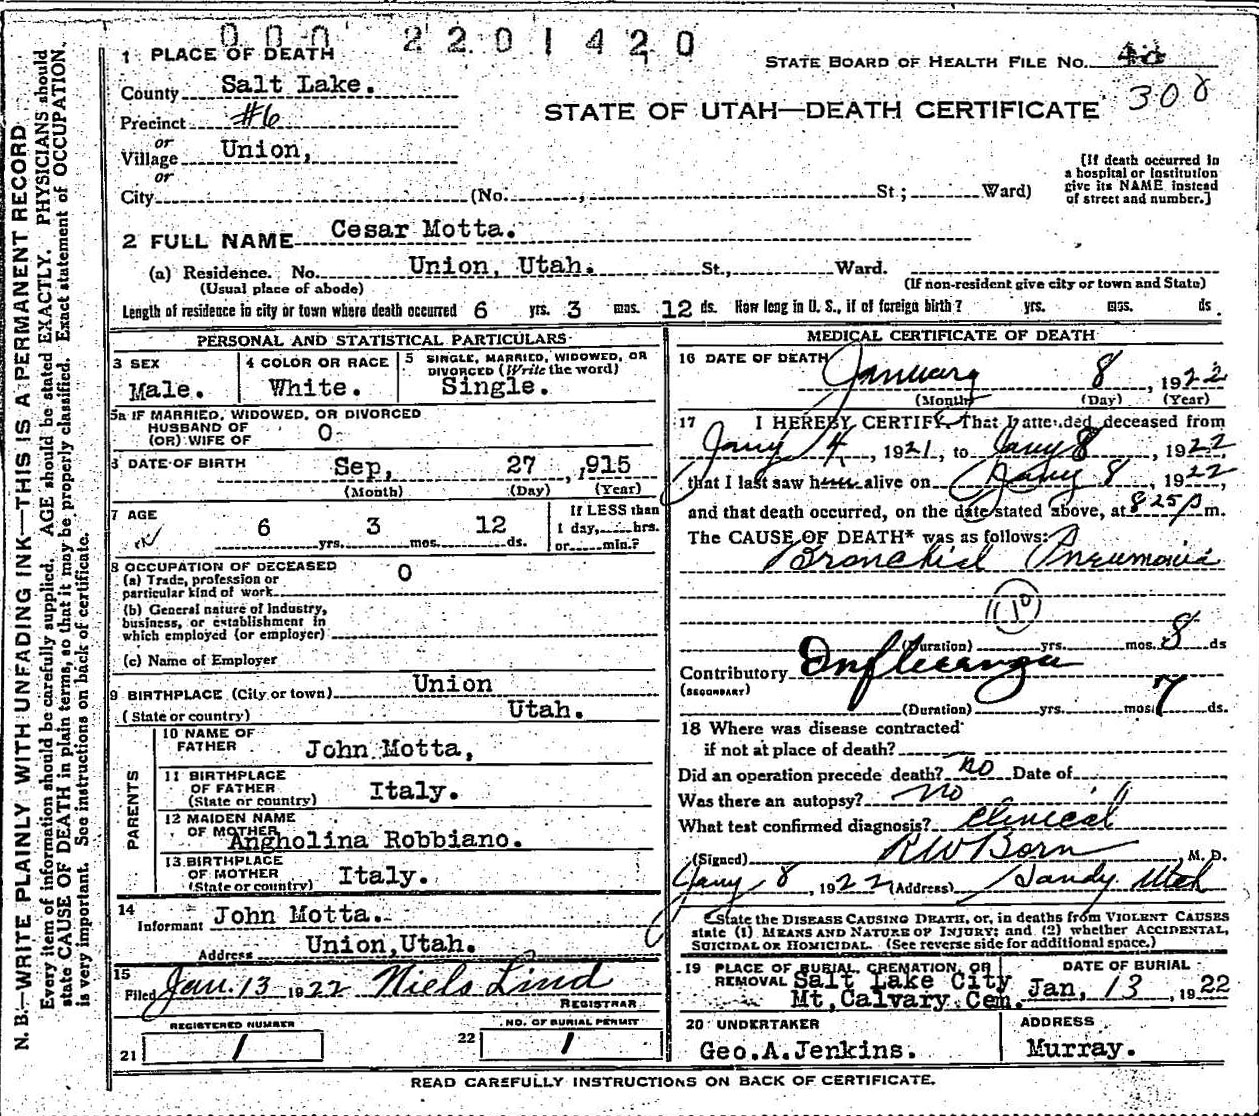 000 2201420
1 PLACE OF DEATH
STATE BOARD OF HEALTH FILE No.
County Salt Lake.
STATE OF UTAH—DEATH CERTIFICATE 308
Precinct #6
or
Village Union,
or
City (No. , St; Ward)
[If death occurred in
a hospital or institution
give its NAME instead
of street and number.]
2 FULL NAME Cesar Motta.
(a) Residence. No. Union, Utah. St., Ward.
(Usual place of abode) (If non-resident give city or town and State)
Length of residence in city or town where death occurred 6 yrs. 3 mos. 12 ds. How long in U. S., if of foreign birth? yrs. mos. ds.
PERSONAL AND STATISTICAL PARTICULARS
3 SEX
Male.
4 COLOR OR RACE
White.
5 SINGLE, MARRIED, WIDOWED, OR
DIVORCED (Write the word)
Single.
5a IF MARRIED, WIDOWED, OR DIVORCED
HUSBAND OF
(OR) WIFE OF 0
6 DATE OF BIRTH Sep, 27 ,915
(Month) (Day) (Year)
7 AGE
6 yrs. 3 mos. 12 ds.
If LESS than
1 day, hrs.
or min.?
8 OCCUPATION OF DECEASED
(a) Trade, profession or
particular kind of work 0
(b) General nature of Industry,
business, or establishment in
which employed (or employer)
(c) Name of Employer
9 BIRTHPLACE (City or town) Union
(State or country) Utah.
PARENTS
10 NAME OF
FATHER John Motta,
11 BIRTHPLACE
OF FATHER
(State or country) Italy.
12 MAIDEN NAME
OF MOTHER
Angholina Robbiano.
13 BIRTHPLACE
OF MOTHER
(State or country) Italy.
14
Informant John Motta.
Address Union, Utah.
15
Filed Jan. 13 1922 Niels Lind
REGISTRAR
REGISTERED NUMBER
21 1
NO. OF BURIAL PERMIT
22 1
MEDICAL CERTIFICATE OF DEATH
16 DATE OF DEATH
January 8, 1922
(Month) (Day) (Year)
17 I HEREBY CERTIFY, That I attended deceased from
Jany 4, 1921, to Jany 8, 1922
that I last saw him alive on Jany 8, 1922,
and that death occurred, on the date stated above, at 825 p m.
The CAUSE OF DEATH* was as follows:
Bronchial Pneumonia
(10)
(Duration) yrs. mos. 8 ds
Contributory Influenza
(SECONDARY)
(Duration) yrs. mos. 7 ds.
18 Where was disease contracted
if not at place of death?
Did an operation precede death? no Date of
Was there an autopsy? no
What test confirmed diagnosis? Clinical
(Signed) R W Born, M. D.
Jany 8, 1922 (Address) Sandy Utah
*State the DISEASE CAUSING DEATH, or, in deaths from VIOLENT CAUSES
state (1) MEANS AND NATURE OF INJURY; and (2) whether ACCIDENTAL,
SUICIDAL OR HOMICIDAL. (See reverse side for additional space.)
19 PLACE OF BURIAL, CREMATION, OR
REMOVAL Salt Lake City
Mt, Calvary Cem.
DATE OF BURIAL
Jan, 13, 1922
20 UNDERTAKER
Geo.A.Jenkins.
ADDRESS
Murray.
READ CAREFULLY INSTRUCTIONS ON BACK OF CERTIFICATE.
N. B.—WRITE PLAINLY WITH UNFADING INK—THIS IS A PERMANENT RECORD
Every item of information should be carefully supplied. AGE should be stated EXACTLY. PHYSICIANS should
state CAUSE OF DEATH in plain terms, so that it may be properly classified. Exact statement of OCCUPATION
is very important. See instructions on back of certificate.